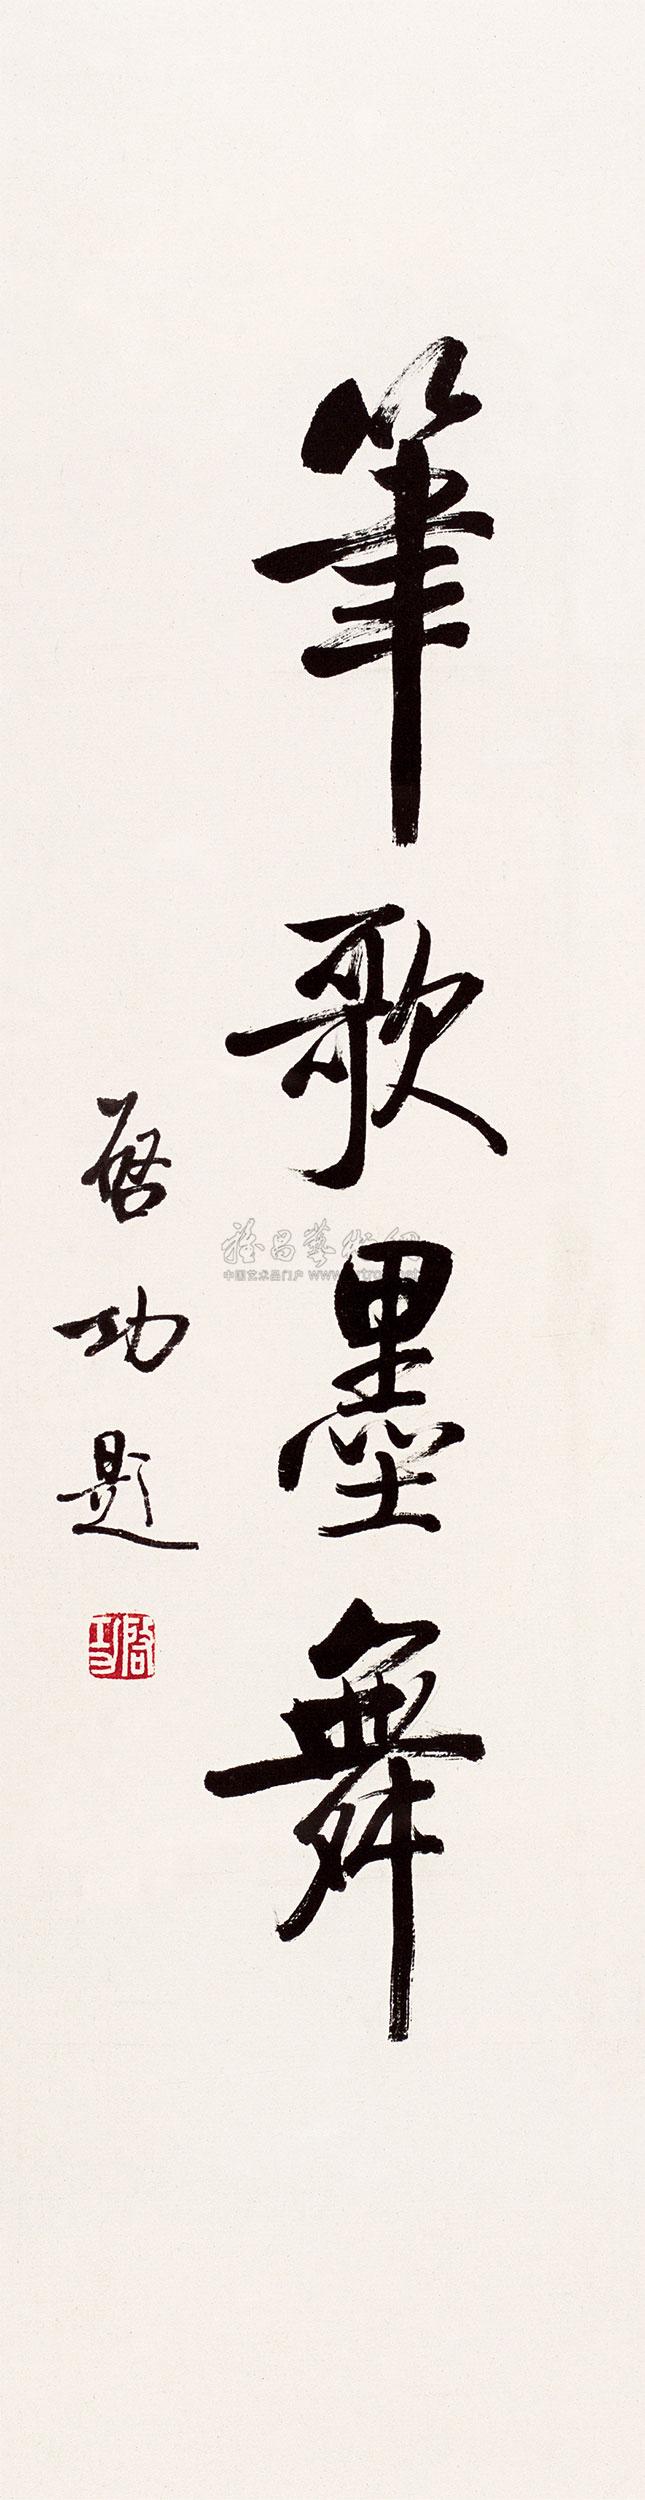 筆歌墨舞
啟功題
啟功
雅昌藝術網
中国艺术品门户 www.artron.net